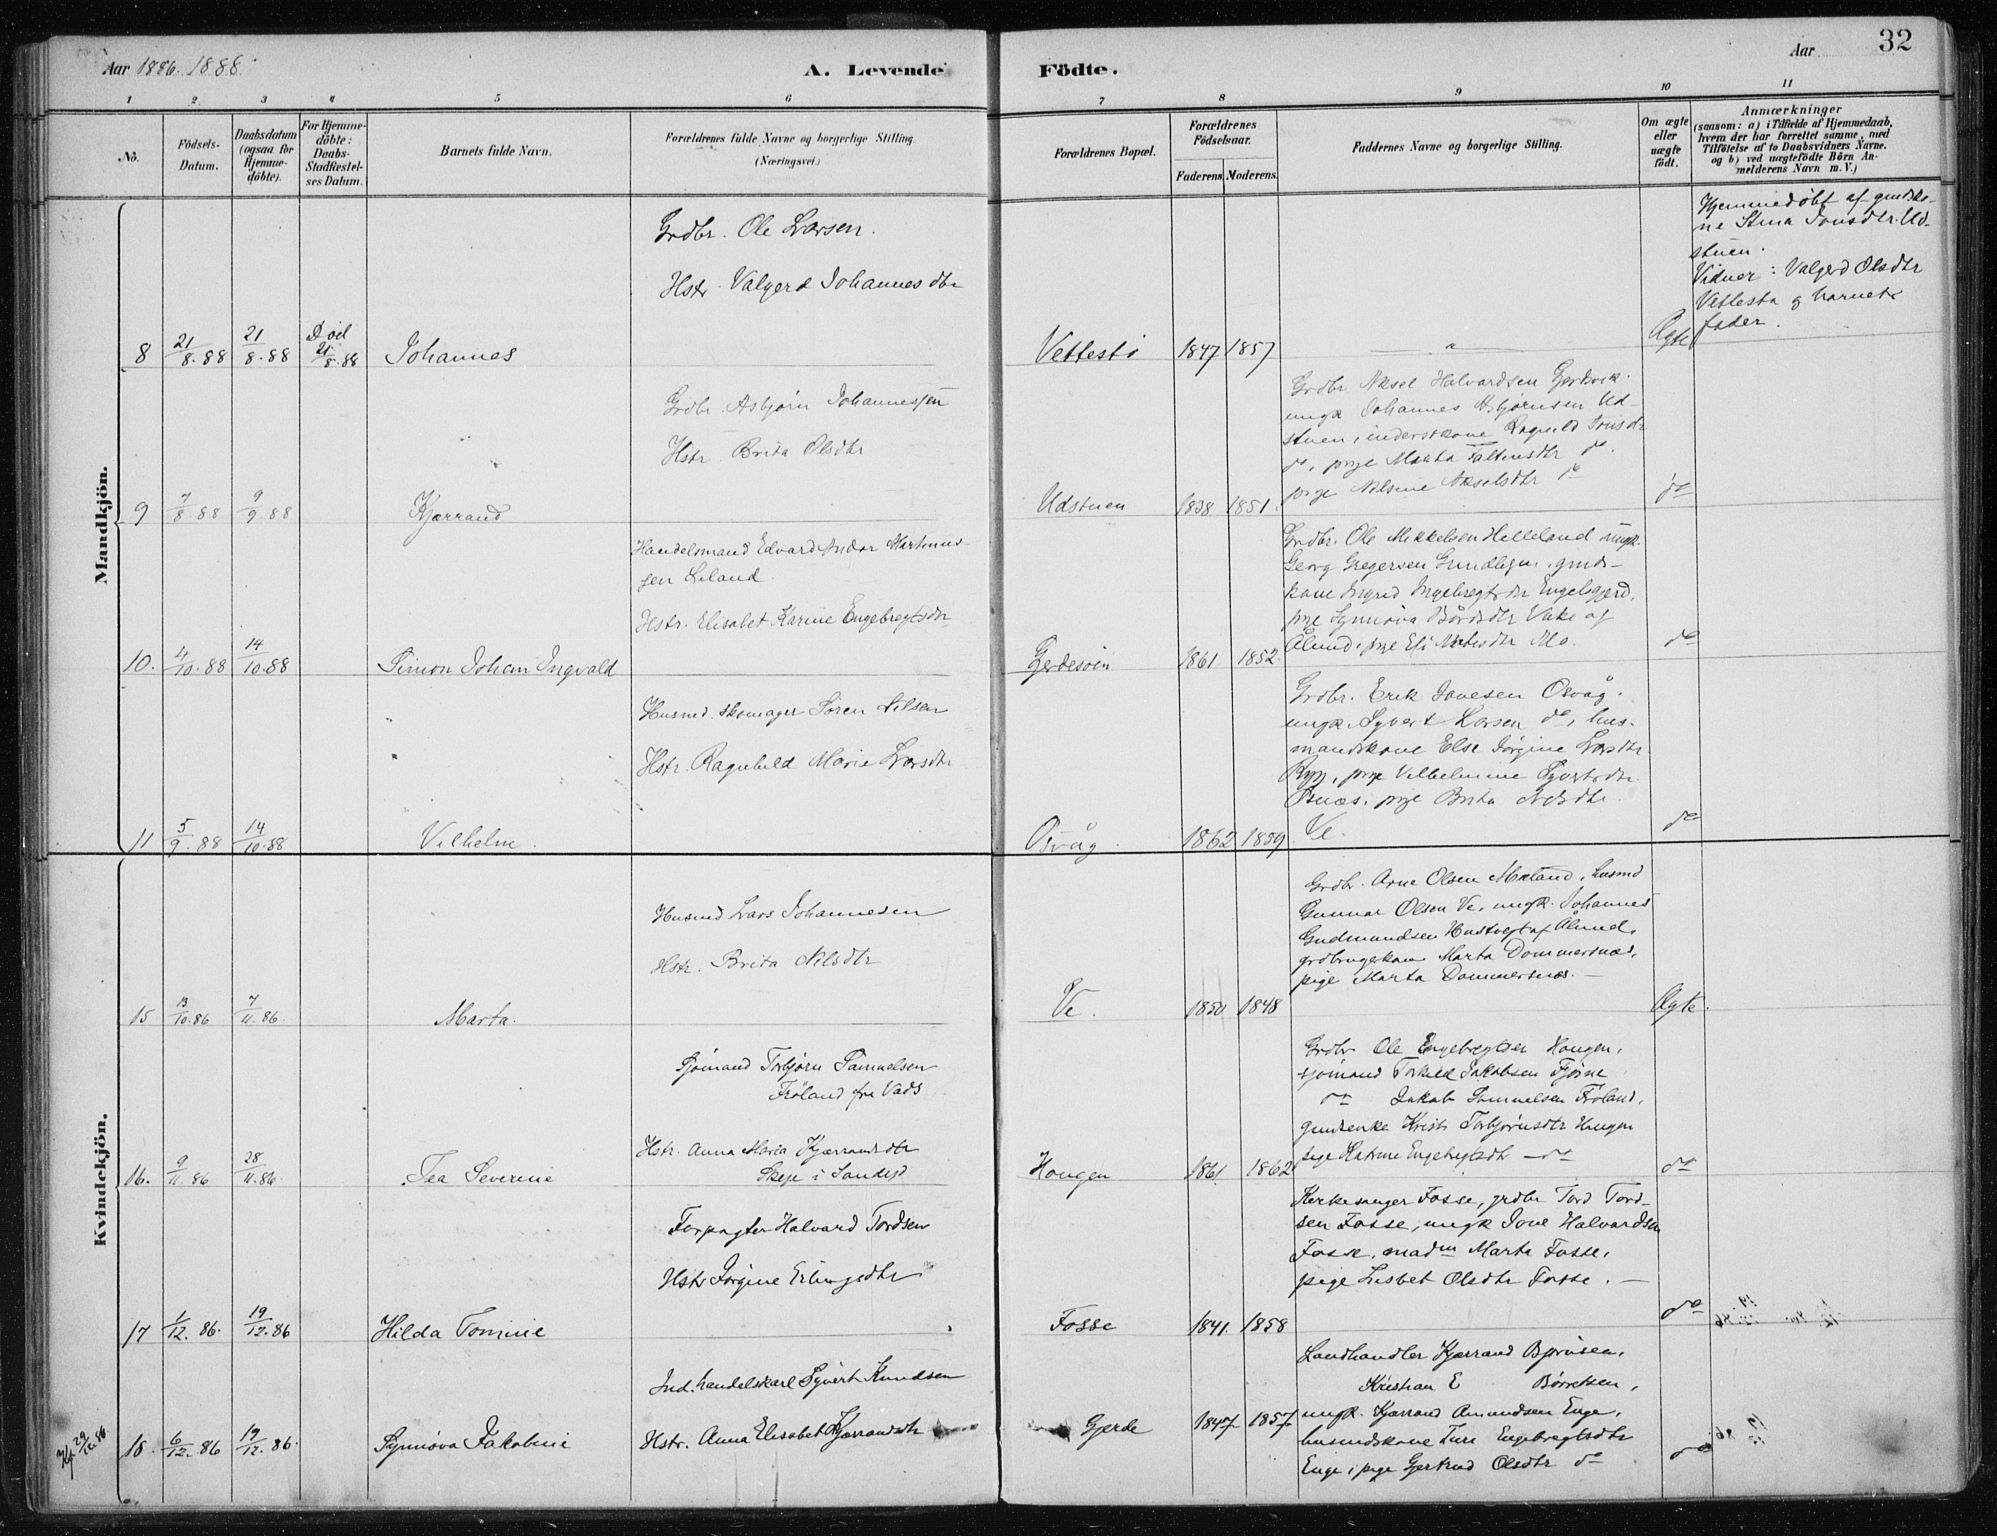 Aar 1886. 1888.
A. Levende
Födte.
Aar
32
1
2
3
4
5
6
7
8
9
10
11
No.
Födsels-
Datum.
Daabsdatum
(ogsaa for
Hjemme-
döbte).
For Hjemme-
döbte:
Daabs-
Stadfæstel-
ses Datum.
Barnets fulde Navn.
Forældrenes fulde Navne og borgerlige Stilling.
(Næringsvei.)
Forældrenes Bopæl.
Forældrenes
Födselsaar.
Faderens.
Moderens.
Faddernes Navne og borgerlige Stilling.
Om ægte
eller
uægte
födt.
Anmærkninger
(saasom: a) i Tilfælde af Hjemmedaab,
hvem der har forrettet samme, med
Tilföielse af to Daabsvidners Navne.
og b) ved uægtefödte Börn An-
melderens Navn m. V.)
Mandkjön.
8
21/8.88
21/8.88
Död
21/8.88
Johannes
Grdbr. Ole Larsen.
Hstr. Valgerd Johannesdtr
Vettestø
1847
1857
"
Ægte
Hjemmedøbt af gmdsko-
ne Stina Jonsdtr. Ud-
stuen.
Vidner: Valgerd Olsdtr
Vettestø og barnets
fader.
9
7/8.88
9/9.88
Kjærrand
Grdbr. Asbjørn Johannessen
Hstr. Brita Olsdtr
Udstuen
1838
1851.
Grdbr Aksel Halvardsen Gjerdsvik.
ungk Johannes Asbjørnsen Ud-
stuen, inderstkone Ragnild Jonsdtr
do, pige Marta do.
pige Nilsine Akselsdtr do
do
10.
4/10.88
14/10.88
Simon Johan Ingvald
Handelsmand Edvard Andor Martinus-
sen Leland.
Hstr. Elisabet Karine Engebregtsdtr
Gjerdesøen
1861
1852.
Grdbr. Ole Mikkelsen Helleland ungk.
Georg Gregersen gmds-
kone Ingrid Ingebregtsdtr Engelsgjerd,
pige Synnøva Bårdsdtr Vike af
Ålund, pige Eli Mo.
do
11
5/9.88
14/10.88
Vilhelm.
Husmd. skomager Søren Nilsen
Hstr. Ragnhild Marie Larsdtr
Osvåg.
1862
1859
Grdbr. Erik Jonesen Osvåg.
ungk. Syvert Larsen do, hus-
mandskone Else Jørgine Larsdtr
Ryg, pige Vilhelmine Syvertsdtr.
Osnæs, pige Brita Nilsdtr.
Ve.
do
Kvindekjön.
15
13/10.86
7/11.86.
Marta.
Husmd Lars Johannesen
Hstr. Brita Nilsdtr
Ve.
1850
1848
Grdbr. Arne Olsen Mæland, husmd
Gunnar Olsen Ve, ungk. Johannes
Gudmundsen Hustvegt af Ålund,
grdbrugerkone Marta Dommersnæs,
pige Marta Dommersnæs. —
Ægte.
16.
9/11.86
28/11.86.
Tea Severine
Sjømand Torbjørn Samuelsen
Frøland fra Vads
Hstr. Anna Maria Kjærrandsdtr
Skeje i Sandejd
Hougen
1861.
1862
Grdbr Ole Engebregtsen Hougen,
sjømand Torkild Jakobsen Fjøsne
do Jakob Samuelsen Frøland,
gmdsenke Kristi Torbjørnsdtr Hougen
pige Katrine Engebregtsdtr — do
do
17
1/12.86.
19/12.86
Hilda Tomine
Forpagter Halvard Tordsen
Hstr Jørgine Erlingsdtr
Fosse
1841.
1858
Kirkesanger Fosse, grdbr Tord Tord-
sen Fosse, ungk Jone Halvardsen
Fosse, madm Marta Fosse,
pige Lisbet Olsdtr Fosse. —
do
29/12.86.
18.
6/12.86
19/12.86.
Synnøva Jakobine
Ind. handelskarl Syvert Knudsen
Hstr. Anna Elisabet Kjærrandsdtr
Gjerde
1847
1857
Landhandler Kjærrand Bjørnsen,
Kristian E Børretsen,
ungk. Kjærrand Amundsen Enge,
husmdskone Turi Engebregtsdtr
Enge, pige Gjertrud Olsdtr do
do